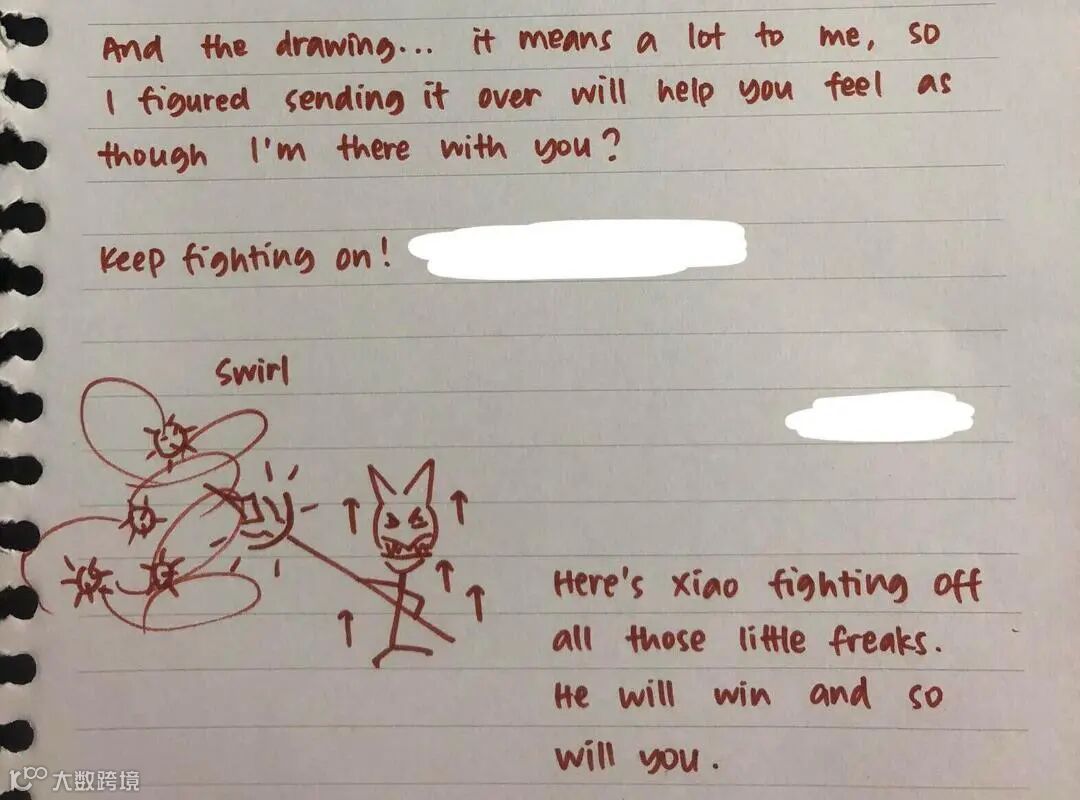 And the drawing... it means a lot to me, so
I figured sending it over will help you feel as
though I'm there with you?
Keep fighting on!
Swirl
Here's Xiao fighting off
all those little freaks.
He will win and so
will you.
大数跨境